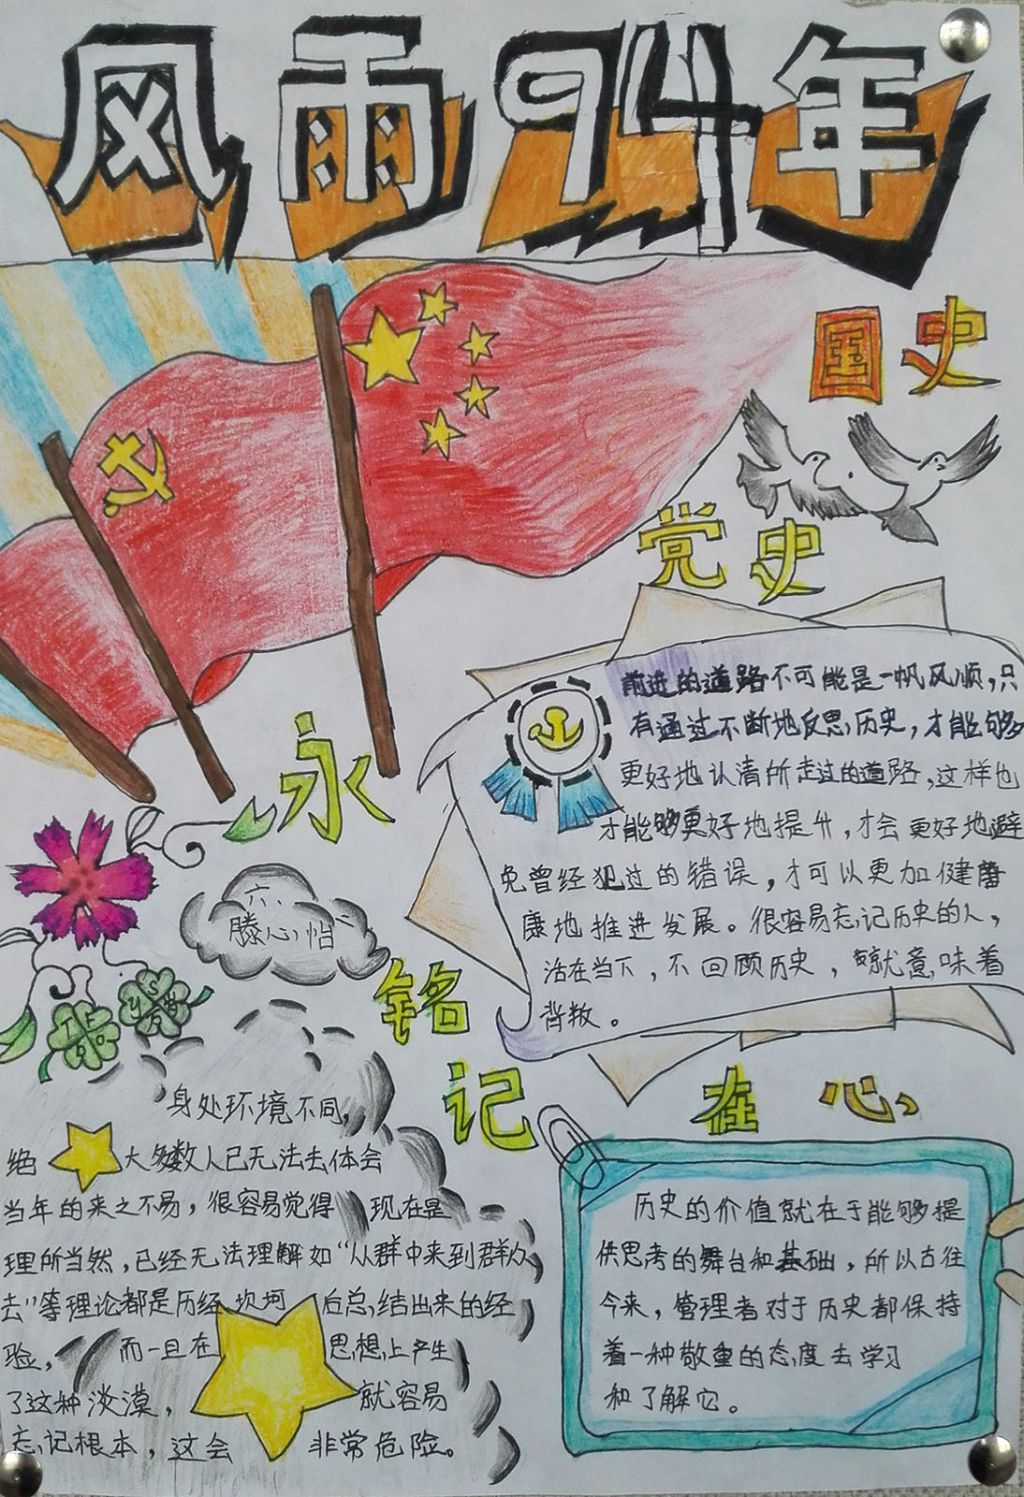 风雨94年
国史
党史
前进的道路不可能是一帆风顺，只
有通过不断地反思历史，才能够
更好地认清所走过的道路，这样也
才能够更好地提升，才会更好地避
免曾经犯过的错误，才可以更加健
康地推进发展。很容易忘记历史的人，
活在当下，不回顾历史，就意味着
背叛。
永
铭
记
在心
六
滕心怡
身处环境不同，
绝大多数人已无法去体会
当年的来之不易，很容易觉得现在是
理所当然，已经无法理解如“从群中来到群众
去”等理论都是历经坎坷后总结出来的经
验，而一旦在思想上产生
了这种淡漠，就容易
忘记根本，这会非常危险。
历史的价值就在于能够提
供思考的舞台和基础，所以古往
今来，管理者对于历史都保持
着一种敬重的态度去学习
和了解它。